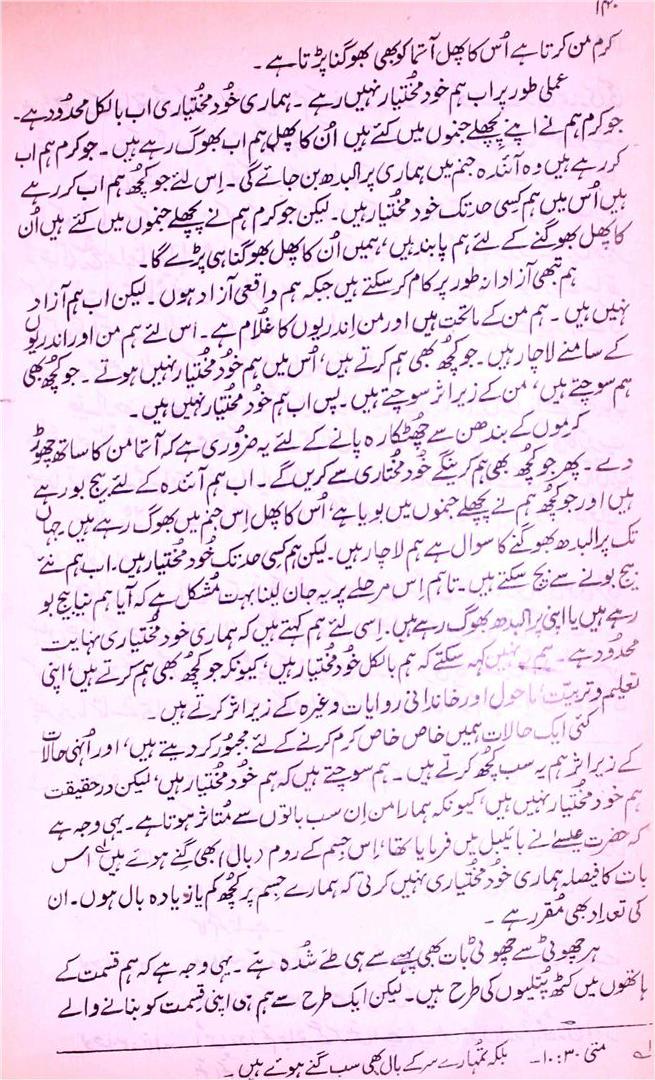 ۱۴۰
کرم من کرتا ہے اُس کا پھل آتما کو بھی بھوگنا پڑتا ہے ۔
عملی طور پر اب ہم خود مختیار نہیں رہے ۔ ہماری خُود مختیاری اب بالکل محدود ہے۔
جو کرم ہم نے اپنے پچھلے جنموں میں کئے ہیں اُن کا پھل ہم اب بھوگ رہے ہیں ۔ جو کرم ہم اب
کر رہے ہیں وہ آئندہ جنم میں ہماری پرالبدھ بن جائے گی ۔ اِس لئے جو کچھ ہم اب کر رہے
ہیں اُس میں ہم کِسی حد تک خود مختیار ہیں۔ لیکن جو کرم ہم نے پچھلے جنموں میں کئے ہیں اُن
کا پھل بھوگنے کے لئے ہم پابند ہیں، ہمیں اُن کا پھل بھوگنا ہی پڑے گا۔
ہم تبھی آزادانہ طور پر کام کر سکتے ہیں جبکہ ہم واقعی آزاد ہوں ۔ لیکن اب ہم آزاد
نہیں ہیں ۔ ہم من کے ماتحت ہیں اور من اِندریوں کا غُلام ہے ۔ اس لئے ہم من اور اندریوں
کے سامنے لاچار ہیں ۔ جو کچھ بھی ہم کرتے ہیں، اُس میں ہم خُود مختیار نہیں ہوتے ۔ جو کچھ بھی
ہم سوچتے ہیں، من کے زیر اثر سوچتے ہیں ۔ پس اب ہم خُود مختیار نہیں ہیں ۔
کرموں کے بندھن سے چھٹکارہ پانے کے لئے یہ ضروری ہے کہ آتما من کا ساتھ چھوڑ
دے ۔ پھر جو کچھ بھی ہم کرینگے خُود مختاری سے کریں گے ۔ اب ہم آئندہ کے لئے بیج بو رہے
ہیں اور جو کچھ ہم نے پچھلے جنموں میں بویا ہے، اُس کا پھل اِس جنم میں بھوگ رہے ہیں۔ جہاں
تک پرالبدھ بھوگنے کا سوال ہے ہم لاچار ہیں۔ لیکن ہم کسی حد تک خُود مختیار ہیں۔ اب ہم نئے
بیج بونے سے بچ سکتے ہیں ۔ تاہم اِس مرحلے پر یہ جان لینا بہت مُشکل ہے کہ آیا ہم نیا بیج بو
رہے ہیں یا اپنی پرالبدھ بھوگ رہے ہیں۔ اِسی لئے ہم کہتے ہیں کہ ہماری خود مختیاری نہایت
محدود ہے ۔ ہم یہ نہیں کہہ سکتے کہ ہم بالکل خُود مختیار ہیں، کیونکہ جو کچھ بھی ہم کرتے ہیں، اپنی
تعلیم و تربیت، ماحول اور خاندانی روایات وغیرہ کے زیر اثر کرتے ہیں ۔
کئی ایک حالات ہمیں خاص خاص کرم کرنے کے لئے مجبور کر دیتے ہیں، اور اُنہی حالات
کے زیر اثر ہم یہ سب کچھ کرتے ہیں ۔ ہم سوچتے ہیں کہ ہم خُود مختیار ہیں، لیکن درحقیقت
ہم خود مختیار نہیں ہیں، کیونکہ ہمارا من اِن سب باتوں سے مُتاثر ہوتا ہے ۔ یہی وجہ ہے
کہ حضرت عیسےٰ نے بائیبل میں فرمایا تھا، اِس جِسم کے روم (بال) بھی گِنے ہوئے ہیںلہ اس
بات کا فیصلہ ہماری خُود مختیاری نہیں کرتی کہ ہمارے جسم پر کُچھ کم یا زیادہ بال ہوں۔ ان
کی تعداد بھی مُقرر ہے ۔
ہر چھوٹی سے چھوٹی بات بھی پہلے سے ہی طے شُدہ ہے ۔ یہی وجہ ہے کہ ہم قسمت کے
ہاتھوں میں کٹھ پتلیوں کی طرح ہیں۔ لیکن ایک طرح سے ہم ہی اپنی قسمت کو بنانے والے
لہ متی ۳۰:۱۰ ۔ بلکہ تُمہارے سر کے بال بھی سب گنے ہوئے ہیں ۔